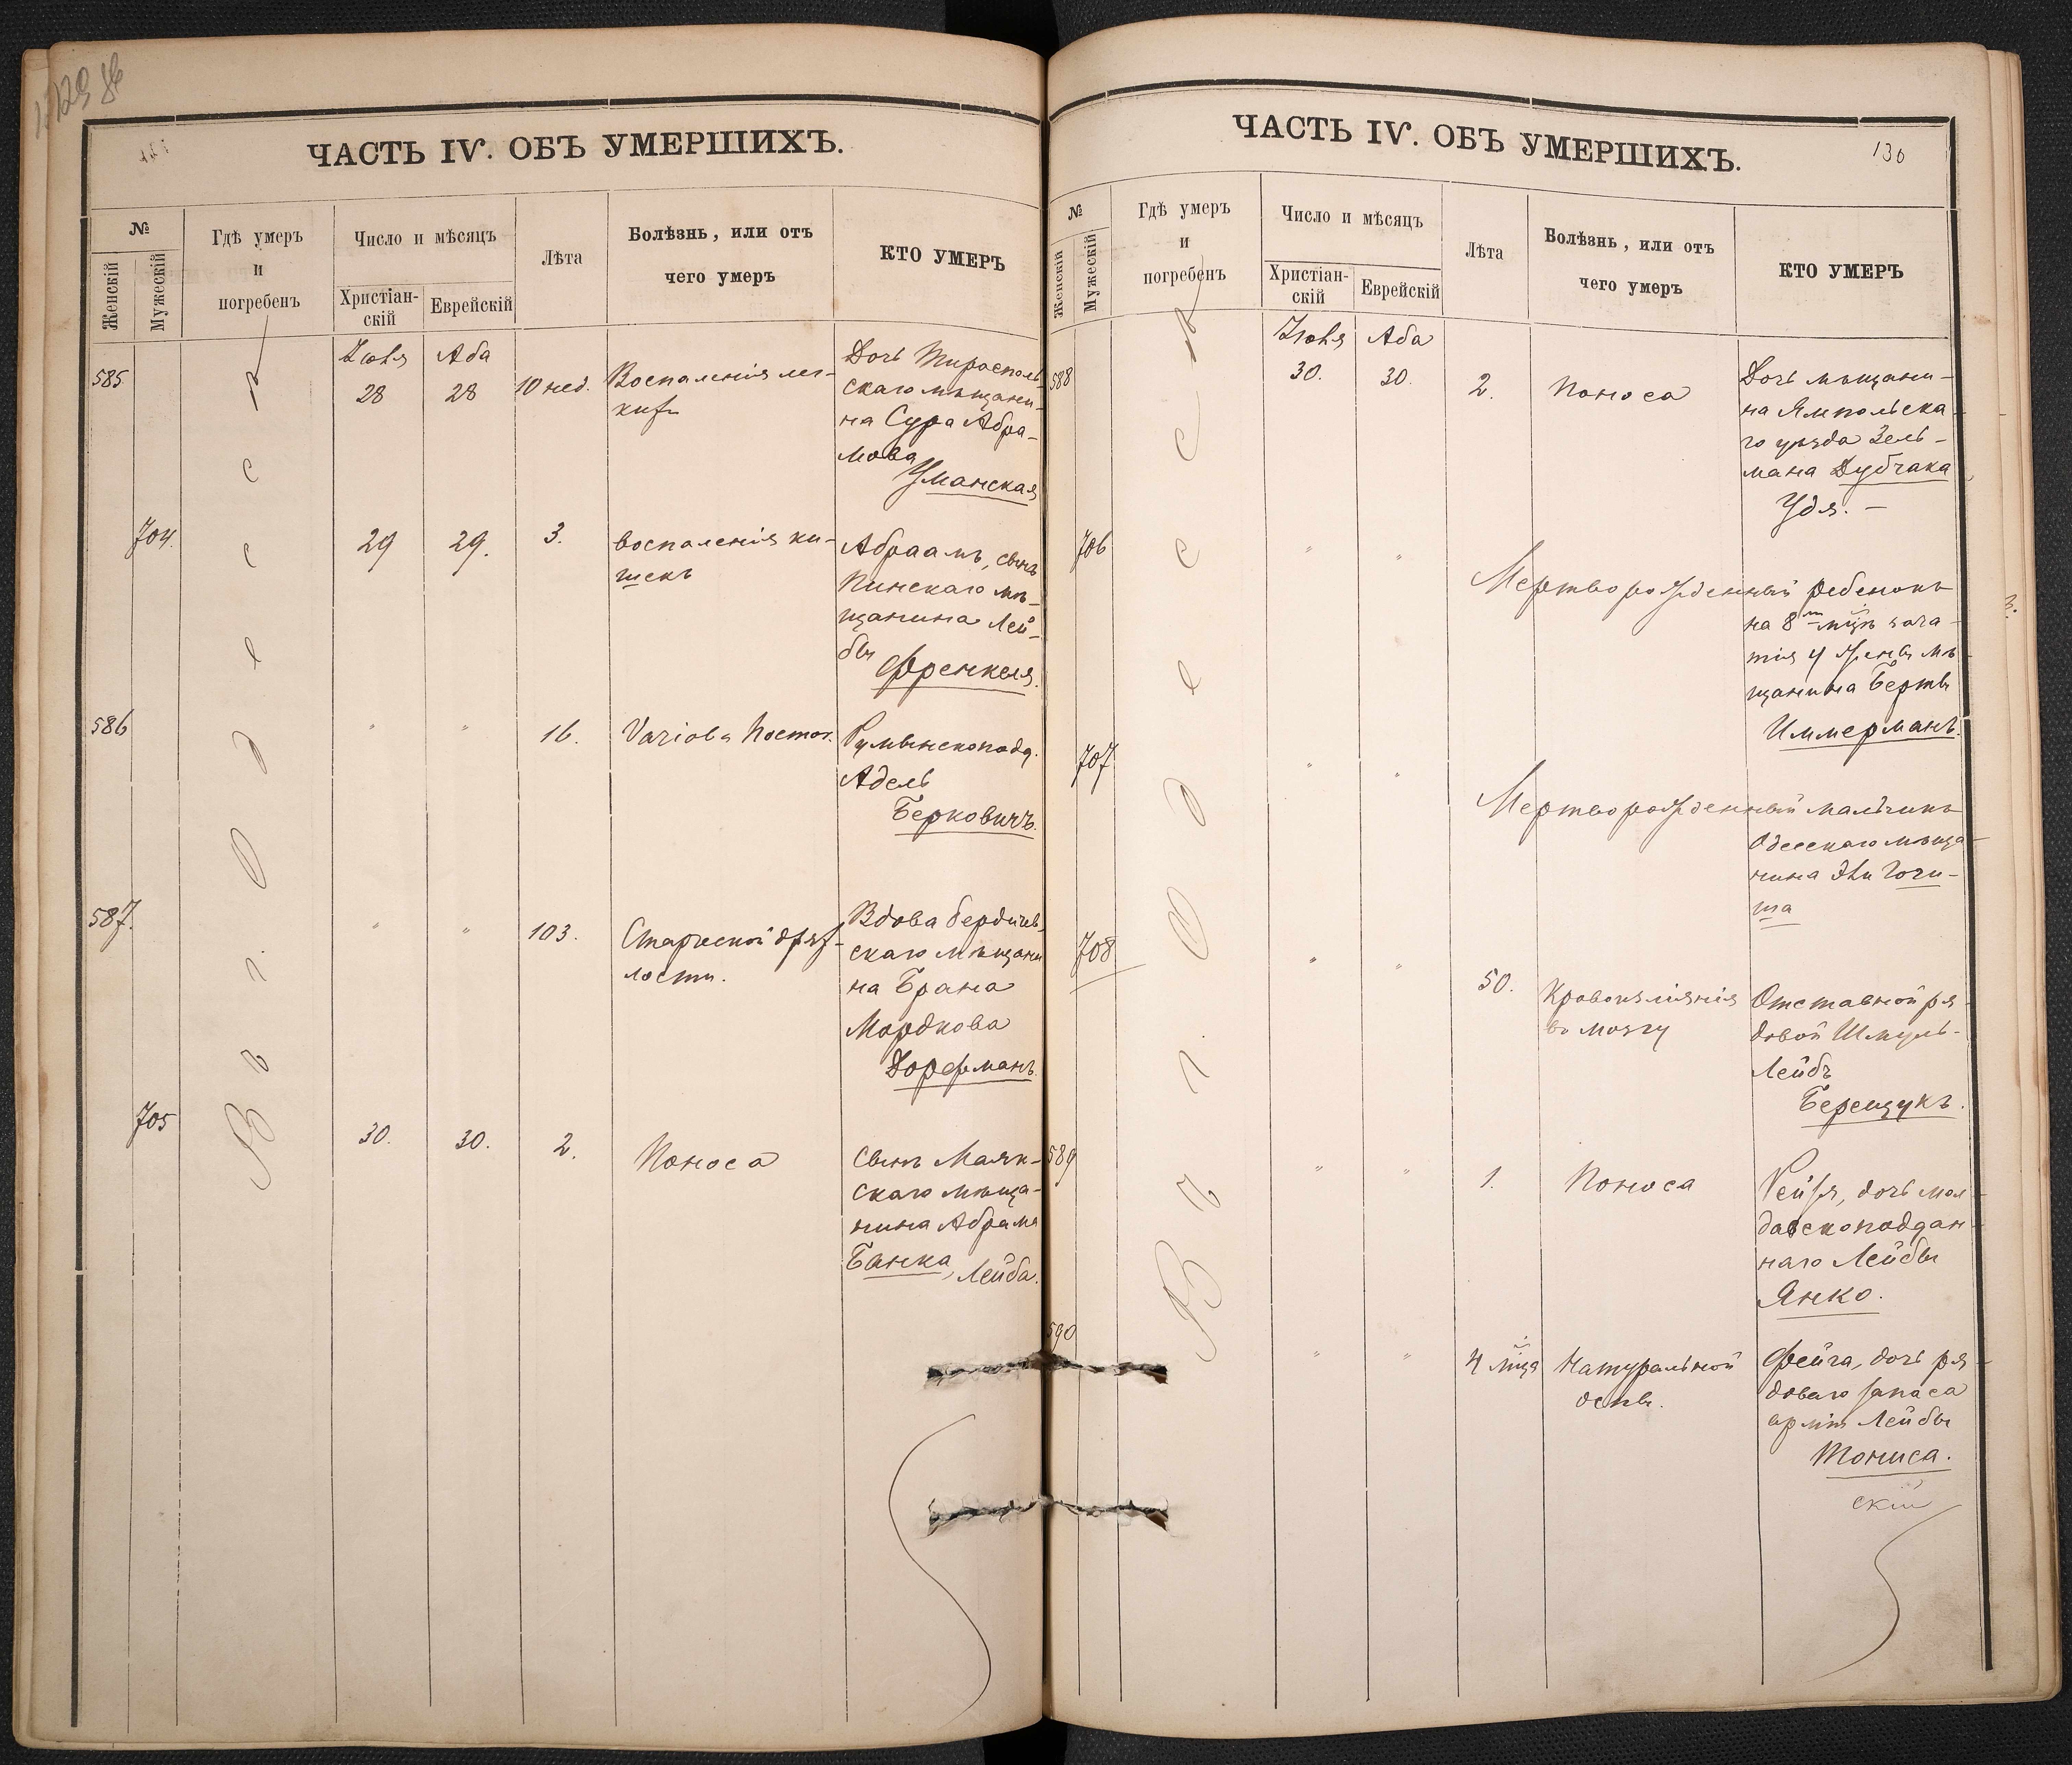 ЧАСТЬ IV. ОБЪ УМЕРШИХЪ.
№
Женскій
Мужескій
Гдѣ умеръ
и
погребенъ
Число и мѣсяцъ
Христіан-
скій
Еврейскій
Лѣта
Болѣзнь, или отъ
чего умеръ
КТО УМЕРЪ
Въ г. Одессѣ
Іюля Аба
585 28 28 10 нед. Воспаленія лег-
кихъ
Дочь Тирасполь-
скаго мѣщани-
на Сура Абра-
мова
Уманская
704. 29 29. 3. воспаленія ки-
шекъ
Абраамъ, сынъ
Пинскаго мѣ-
щанина Лей-
бы
Френкеля.
586 " " 16. Variola
Румынскопод.
Адель
Берковичъ.
587. " " 103. Старческой дрях-
лости.
Вдова бердичев-
скаго мѣщани
на Брана
Мордкова
Дорфманъ.
705 30. 30. 2. Поноса
Сынъ Маяк-
скаго мѣща-
нина Абрама
Банка, Лейба.
ЧАСТЬ IV. ОБЪ УМЕРШИХЪ.
130
№
Женскій
Мужескій
Гдѣ умеръ
и
погребенъ
Число и мѣсяцъ
Христіан-
скій
Еврейскій
Лѣта
Болѣзнь, или отъ
чего умеръ
КТО УМЕРЪ
Въ г. Одессѣ
Іюля Аба
588 30. 30. 2. Поноса
Дочь мѣщани-
на Ямпольска-
го уѣзда Зель-
мана Дубчака
Удя. –
706 " " Мертворожденный ребенокъ
на 8 мцѣ зача-
тія у жены мѣ-
щанина Берты
Иммерманъ.
707 " " Мертворожденный мальчикъ
Одесскаго мѣща-
нина
708 " " 50. Кровоизліянія
въ мозгу
Отставной ря-
довой Шмуль-
Лейбъ
Берещукъ.
589 " " 1. Поноса
Рейзя, дочь мол-
давскоподдан-
наго Лейбы
Янко.
590 " " 4 мца Натуральной
оспы.
Фейга, дочь ря-
доваго запаса
арміи Лейбы
Тониса.
скій